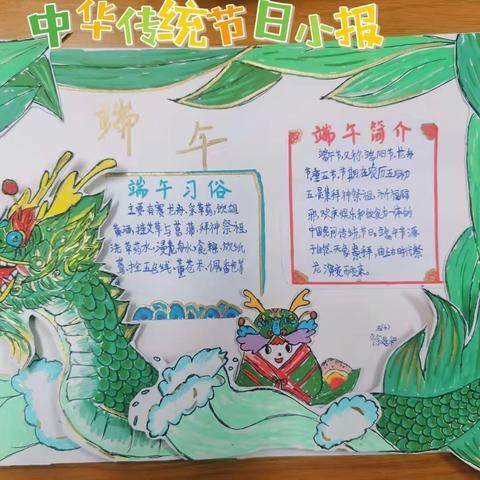 中华传统节日小报
端午
端午习俗
主要有赛龙舟、采草药、饮雄
黄酒、挂艾草与菖蒲、拜神祭祖、
洗草药水、浸龙舟水、食粽、放纸
鸢、拴五色线、薰苍术、佩香包等
端午简介
端午节又称端阳节、龙舟
节、重五节,节期在农历五月初
五,是集拜神祭祖、祈福辟
邪、欢庆娱乐和饮食为一体的
中国民间传统节日。端午节源
于自然天象崇拜,由上古时代祭
龙演变而来。